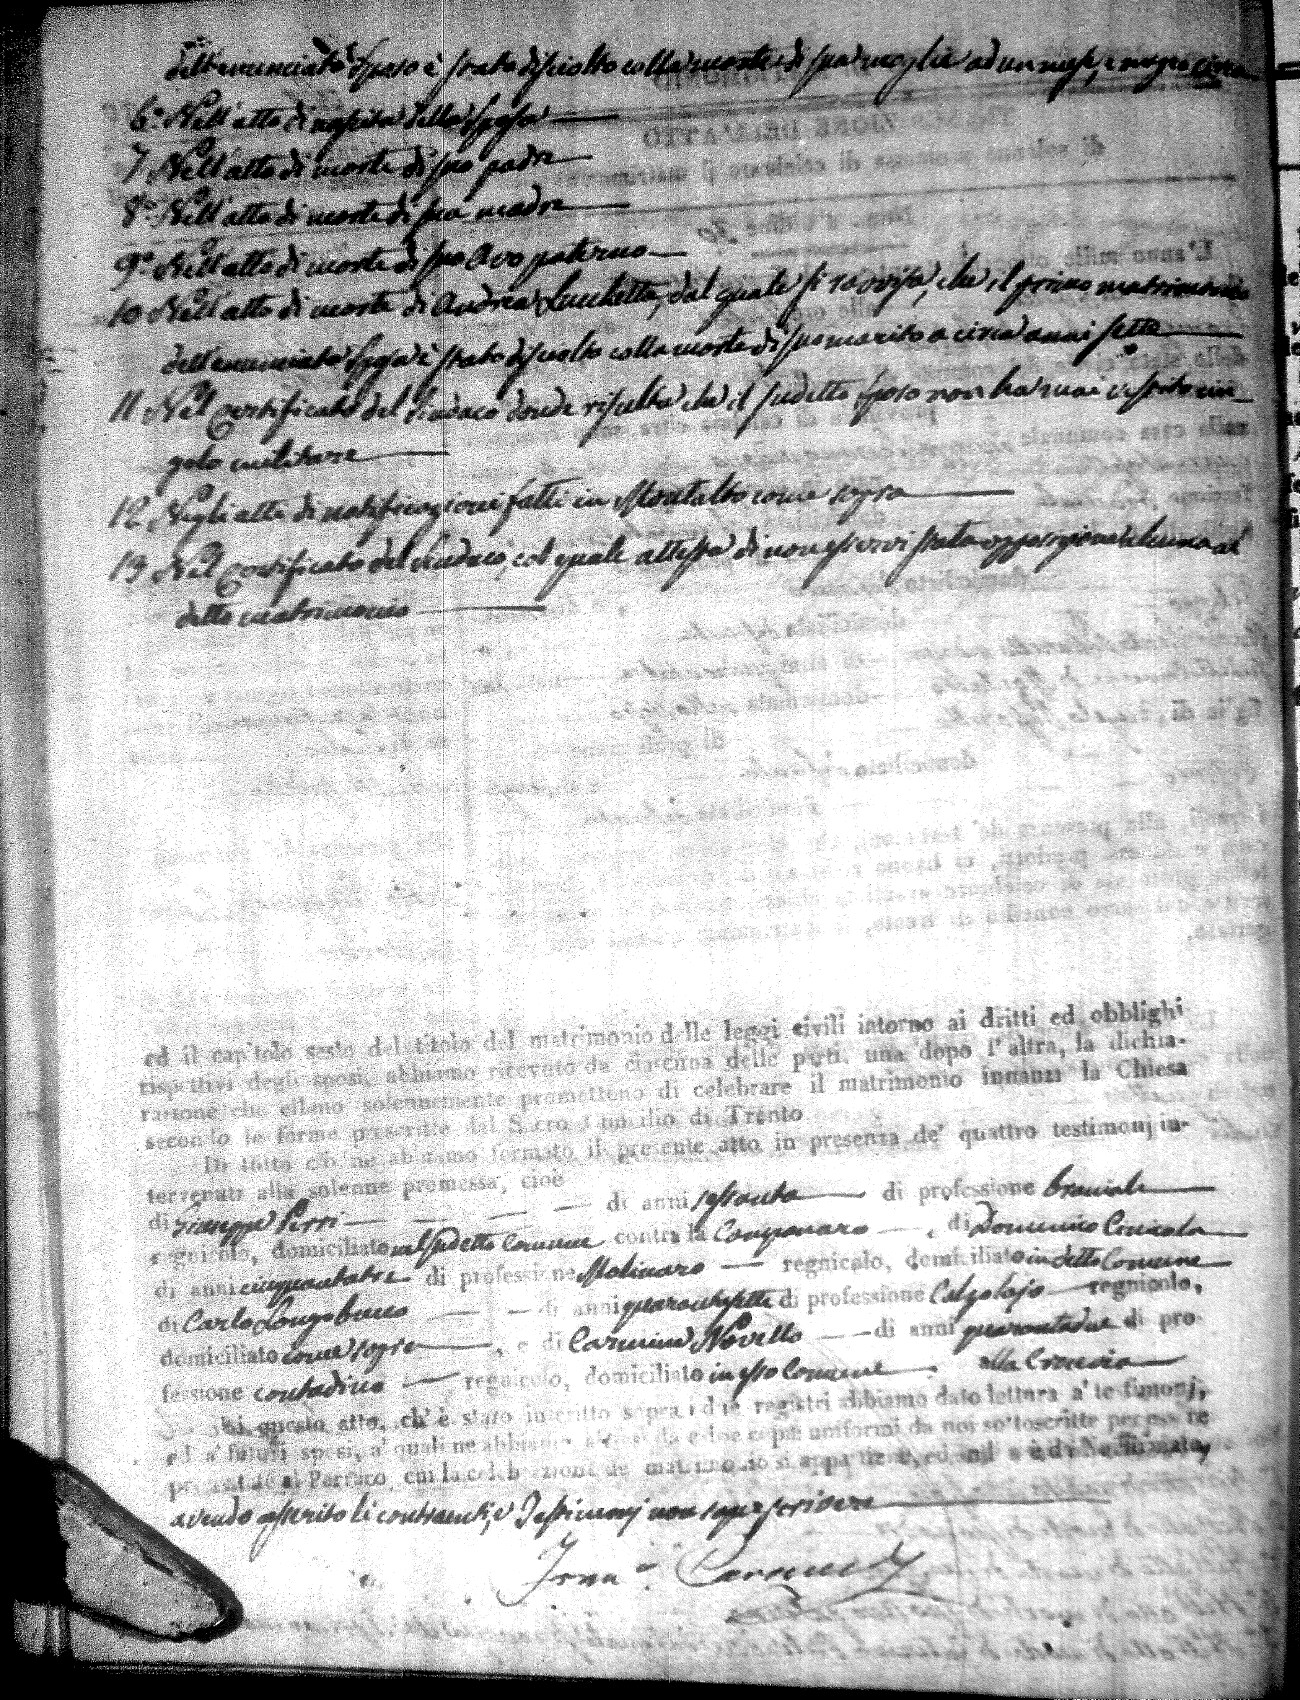 dell'enunciato sposo è stato disciolto colla morte di sua moglie ad un mese, e mezzo circa
6.° Nell'atto di nascita della sposa
7 Nell'atto di morte di suo padre
8.° Nell'atto di morte di sua madre
9.° Nell'atto di morte di suo Avo paterno
10 Nell'atto di morte di Andrea Lucchetta, dal quale si ravvisa, che il primo matrimonio
dell'enunciata sposa è stato disciolto colla morte di suo marito a circa anni sette
11 Nel certificato del Sindaco donde risulta che il sudetto sposo non ha mai
golo militare
12 Negli atti di notificazioni fatti in Montalto come sopra
13 Nel Certificato del Sindaco, col quale attesta di non esservi stata opposizione alcuna al
detto matrimonio
ed il capitolo sesto del titolo del matrimonio delle leggi civili intorno ai dritti ed obblighi
rispettivi degli sposi, abbiamo ricevuto da ciascuna delle parti, una dopo l'altra, la dichia-
razione che ellano solennemente promettono di celebrare il matrimonio innanzi la Chiesa
secondo le forme prescritte dal Sacro Concilio di Trento
Di tutto ciò ne abbiamo formato il presente atto in presenza de' quattro testimonj in-
tervenuti alla solenne promessa, cioè
di Giuseppe Perri di anni sessanta di professione bracciale
regnicolo, domiciliato nel sudetto Comune contra la Camponaro, di Domenico
di anni cinquantatre di professione Molinaro regnicolo, domiciliato in detto Comune
di Carlo Longobucco di anni quarantasette di professione Calzolajo regnicolo,
domiciliato come sopra, e di Carmine Novello di anni quarantadue di pro-
fessione contadino regnicolo, domiciliato in esso Comune alla Croce
Di questo atto, ch'è stato inscritto sopra i due registri abbiamo dato lettura a' testimonj,
ed a' futuri sposi, a' quali ne abbiamo altresì da e due copie uniformi da noi sottoscritte per essere
presentate al Parroco, cui la celebrazione del matrimonio si appartiene, ed indi a è da Noi firmato,
avendo asserito li contraenti, e Testimonj non saper scrivere